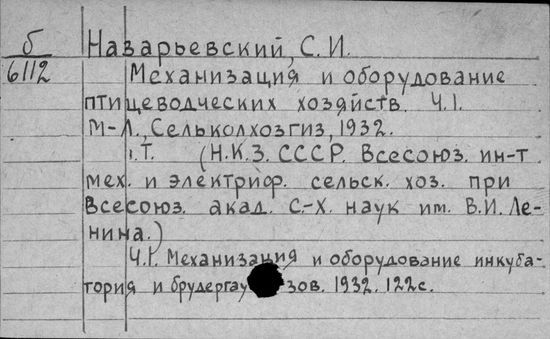 б
6112
Назарьевский, С.И.
Механизация и оборудование
птицеводческих хозяйств. Ч.1.
М-Л., Сельколхозгиз, 1932.
1.т. (Н.К.З. СССР. Всесоюз. ин-т
мех. и электриф. сельск. хоз. при
Всесоюз. акад. с.-х. наук им. В.И. Ле-
нина.)
Ч.1. Механизация и оборудование инкуба-
тория и брудергау зов. 1932. 122с.